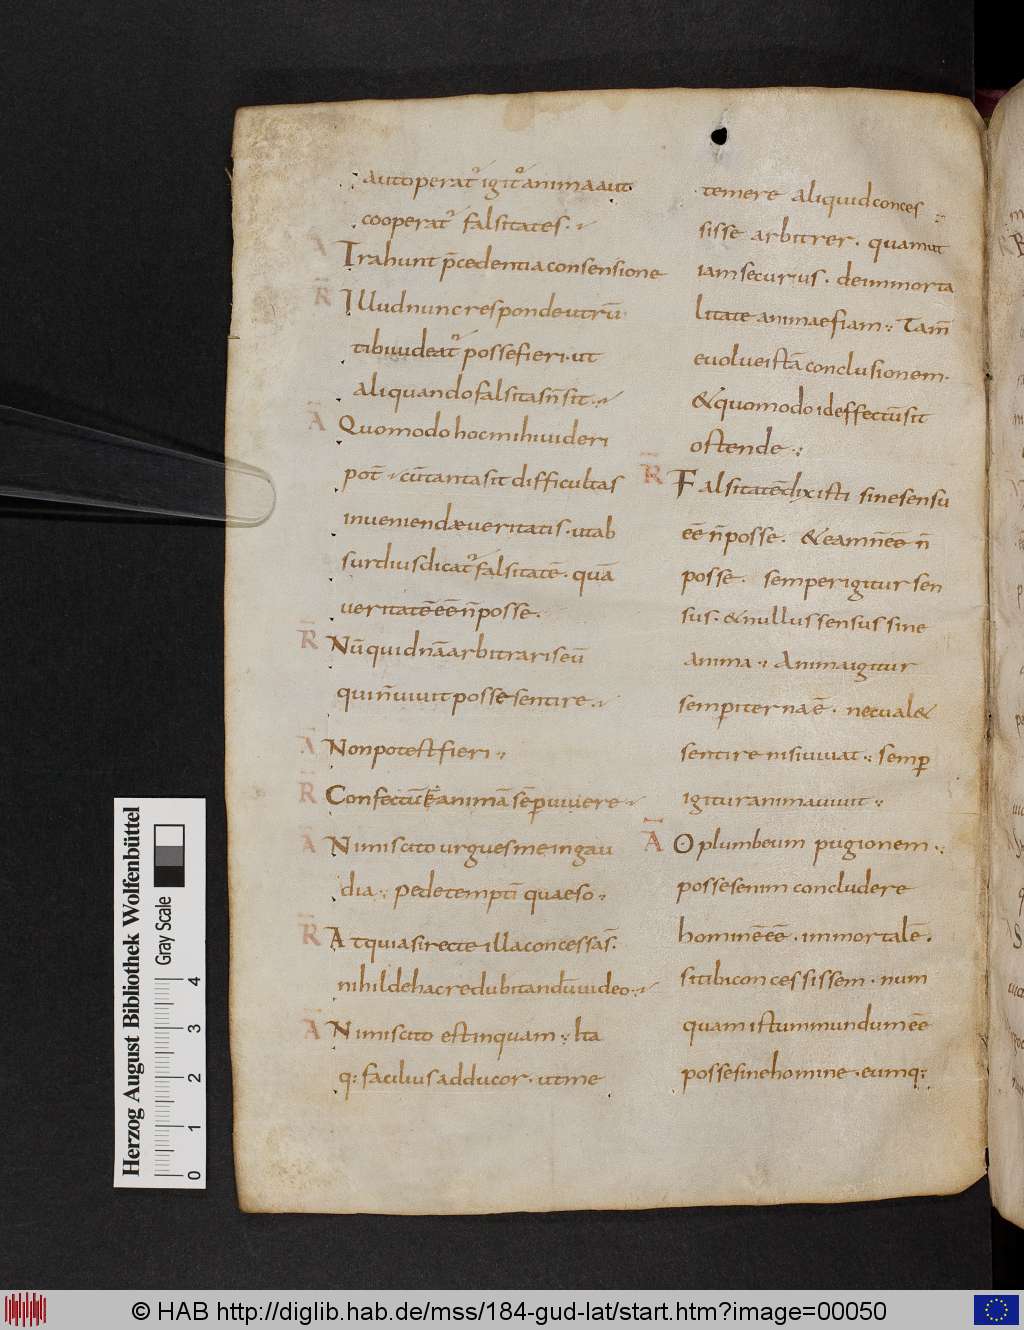 aut operat᷒ igit᷒ anima aut
cooperat᷒ falsitates.
A Trahunt p̄cedentia consensione
R̄ Illud nunc responde utrū
tibi uideat᷒ posse fieri. ut
aliquando falsitas n̄ sit.
Ā Quomodo hoc mihi uideri
pot̄ cū tanta sit difficultas
inueniendae ueritatis. ut ab
surdius dicat᷒ falsitatē. quā
ueritatē eē n̄ posse.
R̄ Nū quidnā arbitraris eū
qui n̄ uiuit posse sentire.
Ā Non potest fieri
R̄ Confectū ē animā sēp uiuere
Ā Nimis cito urgues me in gau
dia. pedetemptī quaeso
R̄ Atqui a si recte illa concessa s̄.
nihil de hac re dubitandū uideo.
Ā Nimis cito est inquam. Ita
q: facilius adducor. ut me
temere aliquid conces
sisse arbitrer. quam ut
iam securius. de inmorta
litate animae fiam. Tam̄
euolue istā conclusionem.
& quomodo id effectū sit
ostende.
R̄ Falsitatē dixisti sine sensu
eē n̄ posse. & eam n̄ eē n̄
posse. semper igitur sen
sus. & nullus sensus sine
anima. Anima igitur
sempiterna ē. nec ual&
sentire nisi uiuat. semp̄
igitur anima uiuit.
Ā O plumbeum pugionem.
posses enim concludere
hominē eē. immortalē.
si tibi concessissem. num
quam istum mundum eē
posse sine homine. eumq:
Herzog August Bibliothek Wolfenbüttel
Gray Scale
0 1 2 3 4
© HAB http://diglib.hab.de/mss/184-gud-lat/start.htm?image=00050